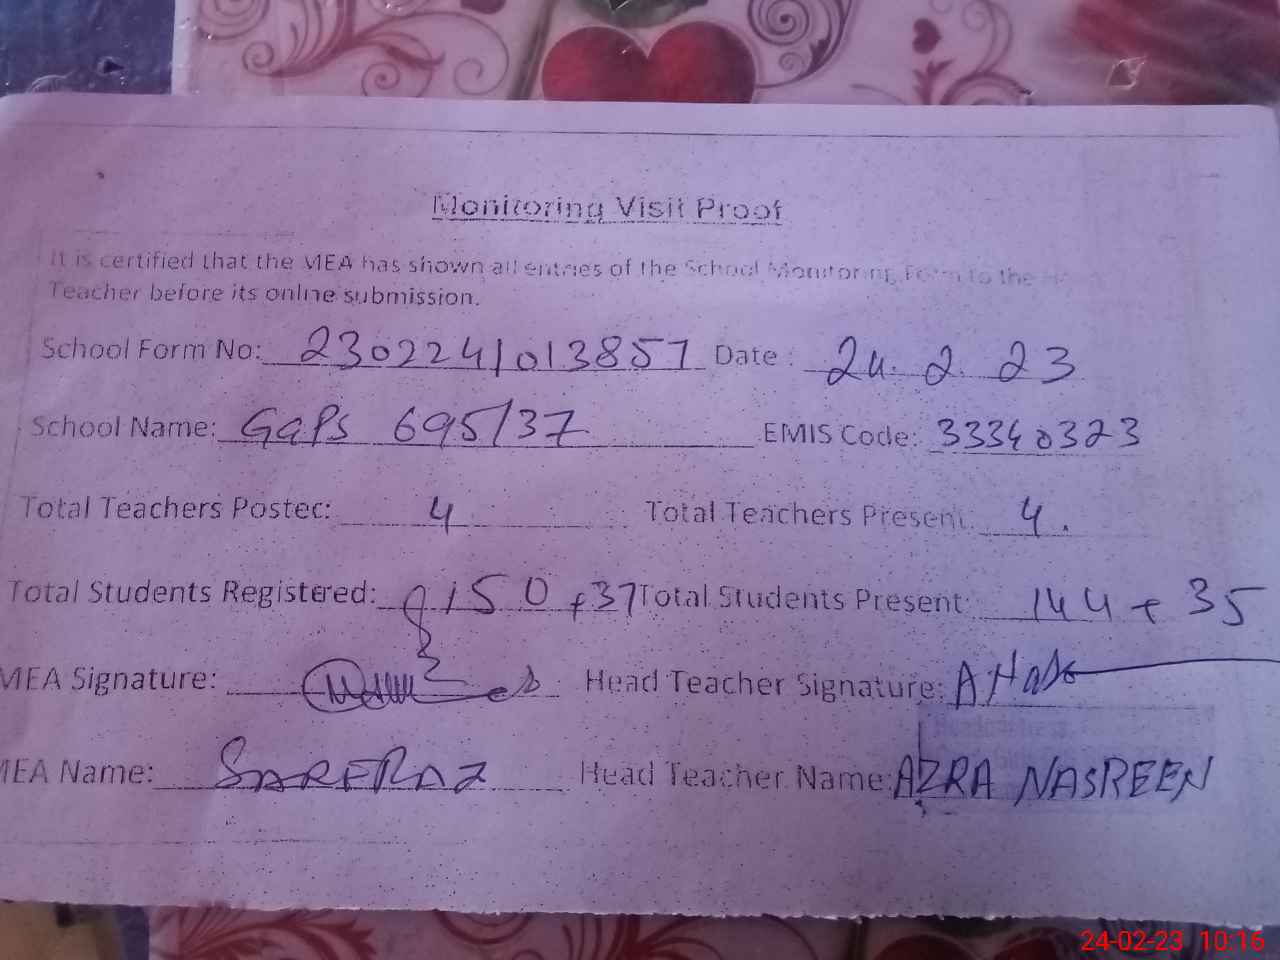 Monitoring Visit Proof
It is certified that the MEA has shown all entries of the School Monitoring Form to the
Teacher before its online submission.
School Form No: 2302241013857 Date: 24. 2. 23
School Name: GGPS 695/37 EMIS Code: 33340323
Total Teachers Posted: 4 Total Teachers Present: 4.
Total Students Registered: 150 +37 Total Students Present: 144 + 35
MEA Signature: Head Teacher Signature:
MEA Name: SARFRAZ Head Teacher Name: AZRA NASREEN
24-02-23 10:16